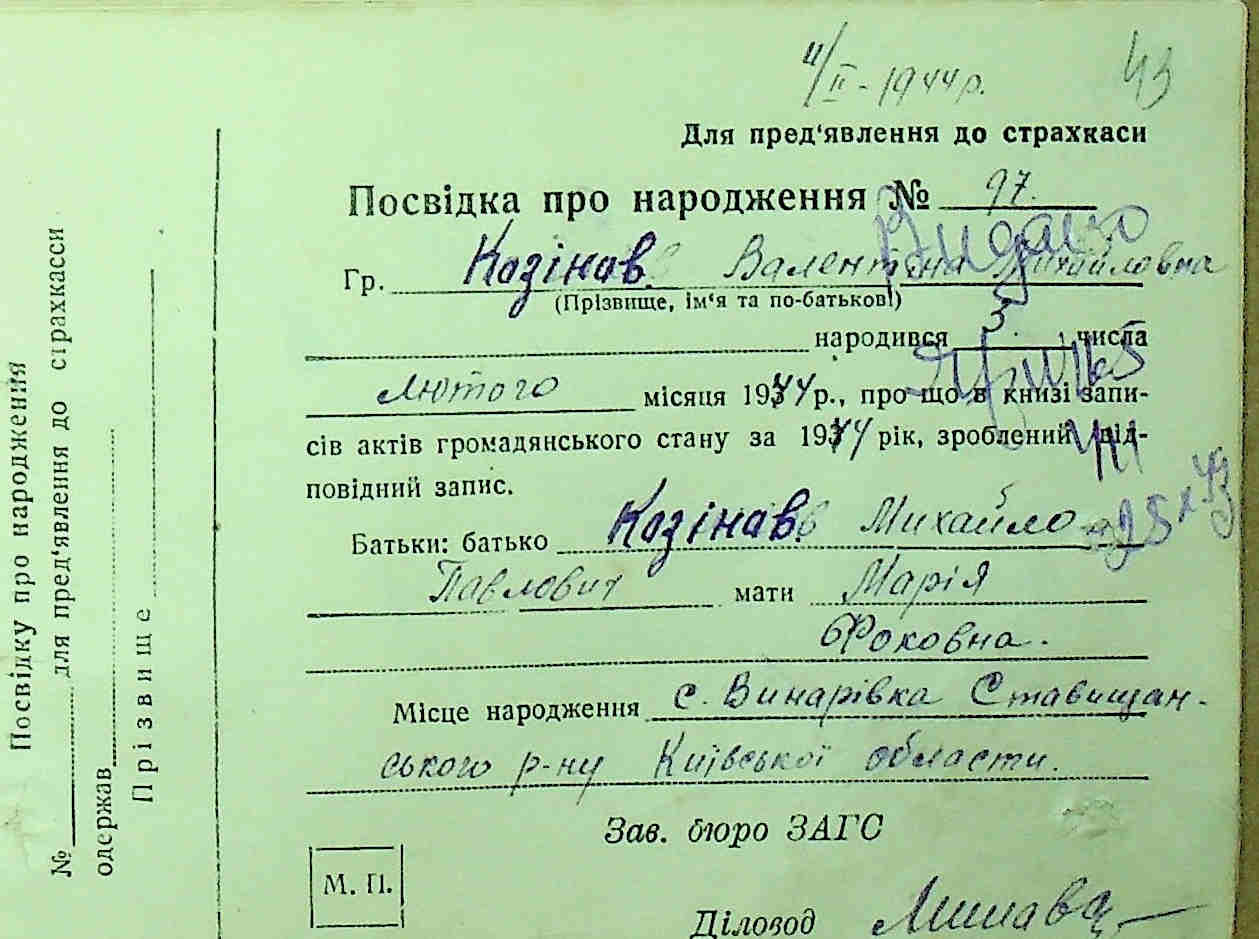 11/II - 1944 р. 43
Для пред‘явлення до страхкаси
Посвідка про народження № 97.
Видано
Гр. Козінав. Валентіна Михайловна
(Прізвище, ім‘я та по-батькові)
народився 3. числа
лютого місяця 1944 р., про що в книзі запи-
сів актів громадянського стану за 1944 рік, зроблений від-
повідний запис.
Батьки: батько Козінав. Михайло
Павлович мати Марія
Фоковна.
Місце народження с. Винарівка Ставищан-
ського р-ну Київської области.
Зав. бюро ЗАГС
М. П.
Діловод
Посвідку про народження
№ для пред‘явлення до страхкасси
одержав
Прізвище